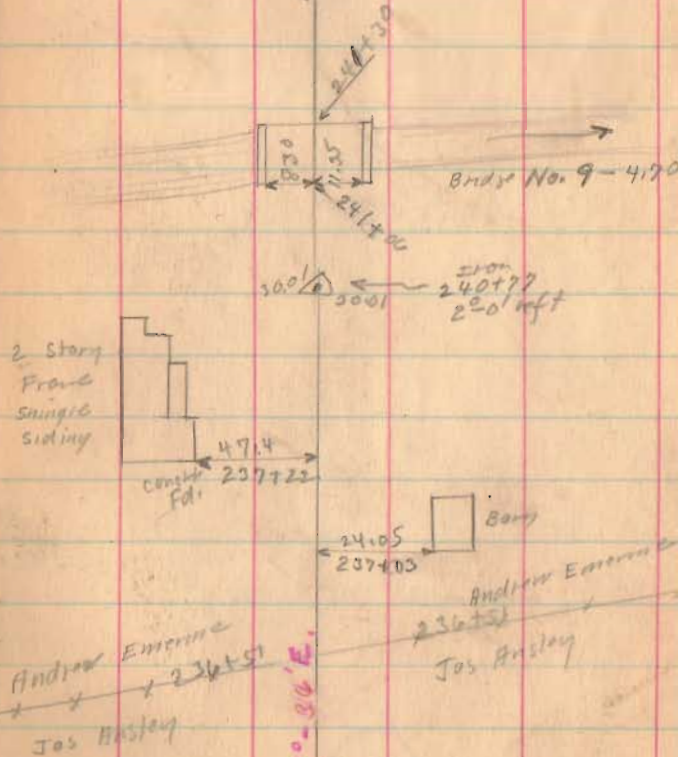 241+30
8.30
11.25
241+06
Bridge No. 9 - 4.70
30.0'
30.01
Iron
240+77
2°-0' left
2 Story
Frame
Shingle
Siding
47.4
237+22
Conct
Fd.
Barn
24.05
237+03
Andrew Emerine
236+51
Jos Ansley
Andrew Emerine
236+51
Jos Ansley
°-36'E.